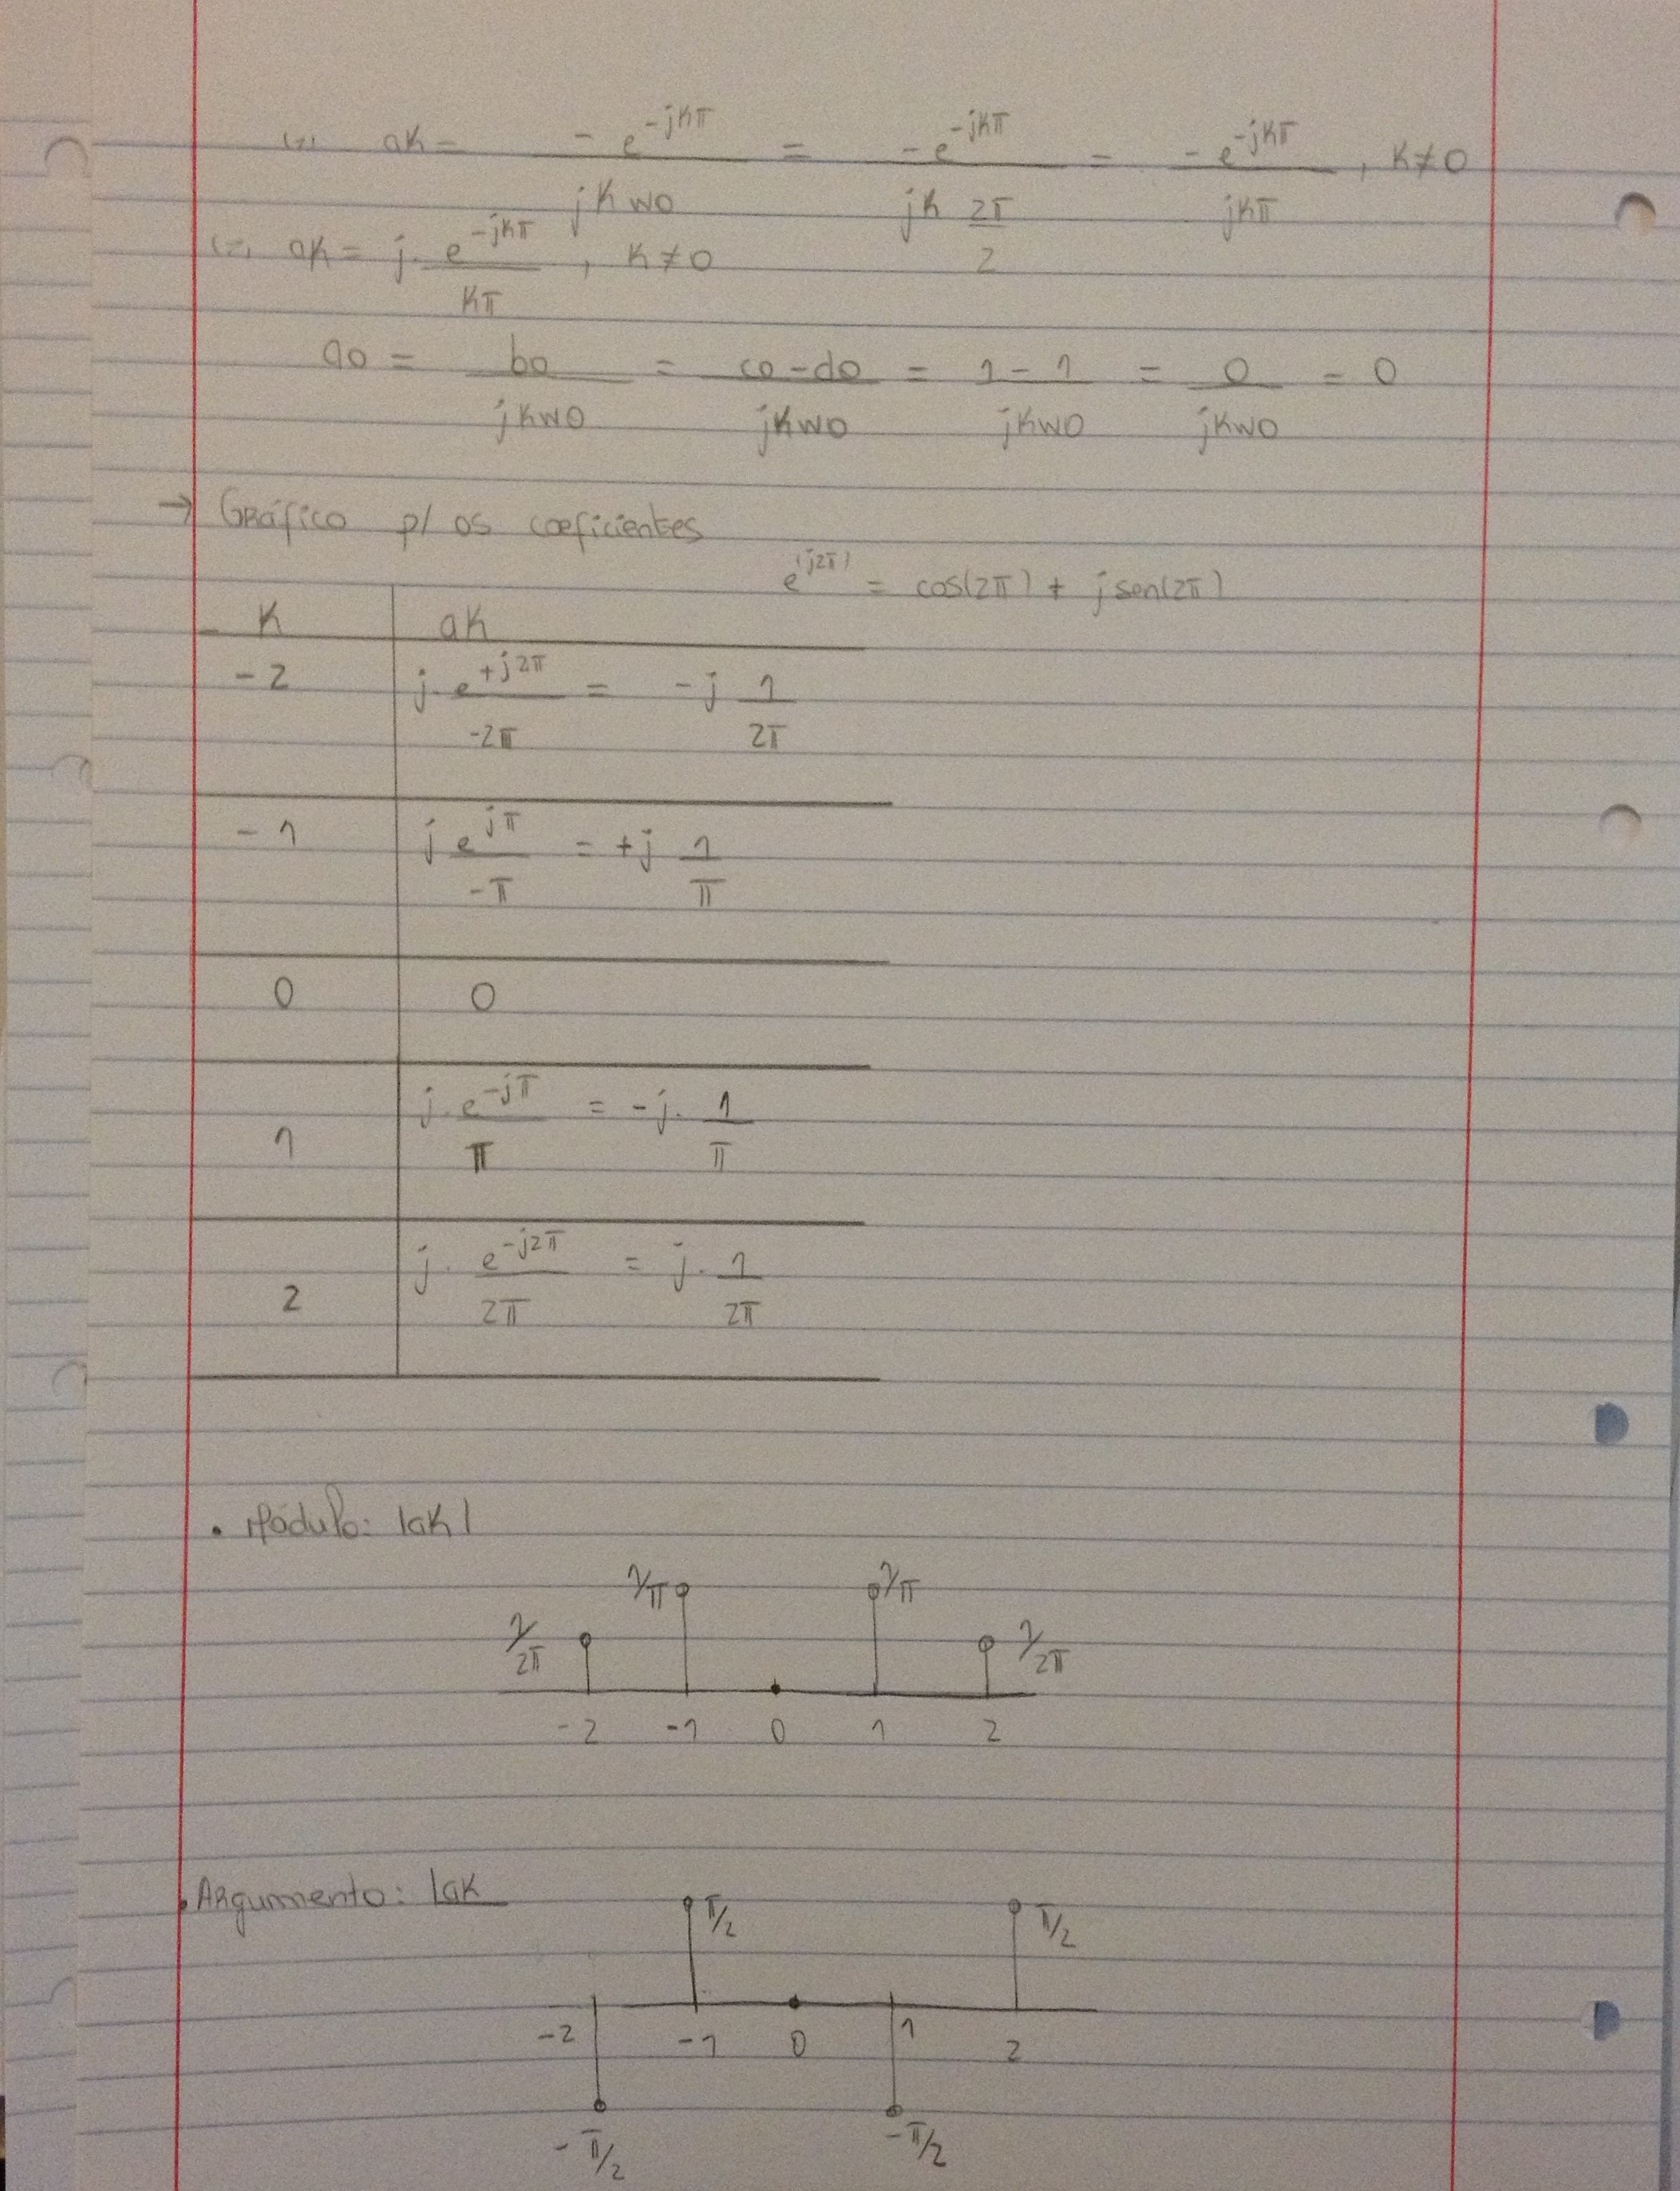 (=) ak = - e^{-jKπ} / jKw0 = - e^{-jKπ} / jK 2π/2 = - e^{-jKπ} / jKπ , K≠0
(=) ak = j. e^{-jKπ} / Kπ , K≠0
a0 = b0 / jKw0 = c0-d0 / jKw0 = 1-1 / jKw0 = 0 / jKw0 = 0
→ Gráfico p/ os coeficientes
e^{(j2π)} = cos(2π) + j sen(2π)
K ak
-2 j. e^{+j2π} / -2π = -j 1/2π
-1 j e^{jπ} / -π = +j 1/π
0 0
1 j. e^{-jπ} / π = -j. 1/π
2 j. e^{-j2π} / 2π = j. 1/2π
• Módulo: |ak|
1/2π 1/π 1/π 1/2π
-2 -1 0 1 2
• Argumento: ∠ak
π/2 π/2
-2 -1 0 1 2
-π/2 -π/2